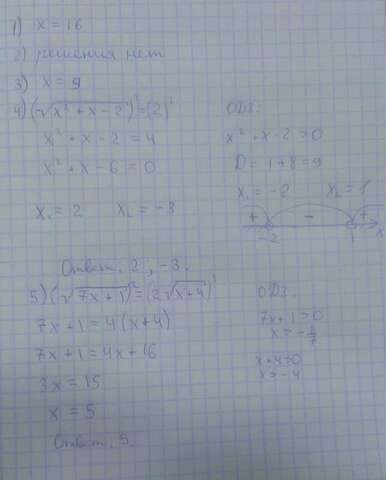 1) x = 16
2) решения нет
3) x = 9
4) (√x² + x - 2)² = (2)²
x² + x - 2 = 4
x² + x - 6 = 0
x₁ = 2 x₂ = -3
ОДЗ:
x² + x - 2 > 0
D = 1 + 8 = 9
x₁ = -2 x₂ = 1
+ - +
-2 1 x
Ответ: 2; -3.
5) (√7x + 1)² = (2√x + 4)²
7x + 1 = 4(x + 4)
7x + 1 = 4x + 16
3x = 15
x = 5
Ответ: 5.
ОДЗ.
7x + 1 > 0
x > -1/7
x + 4 > 0
x > -4